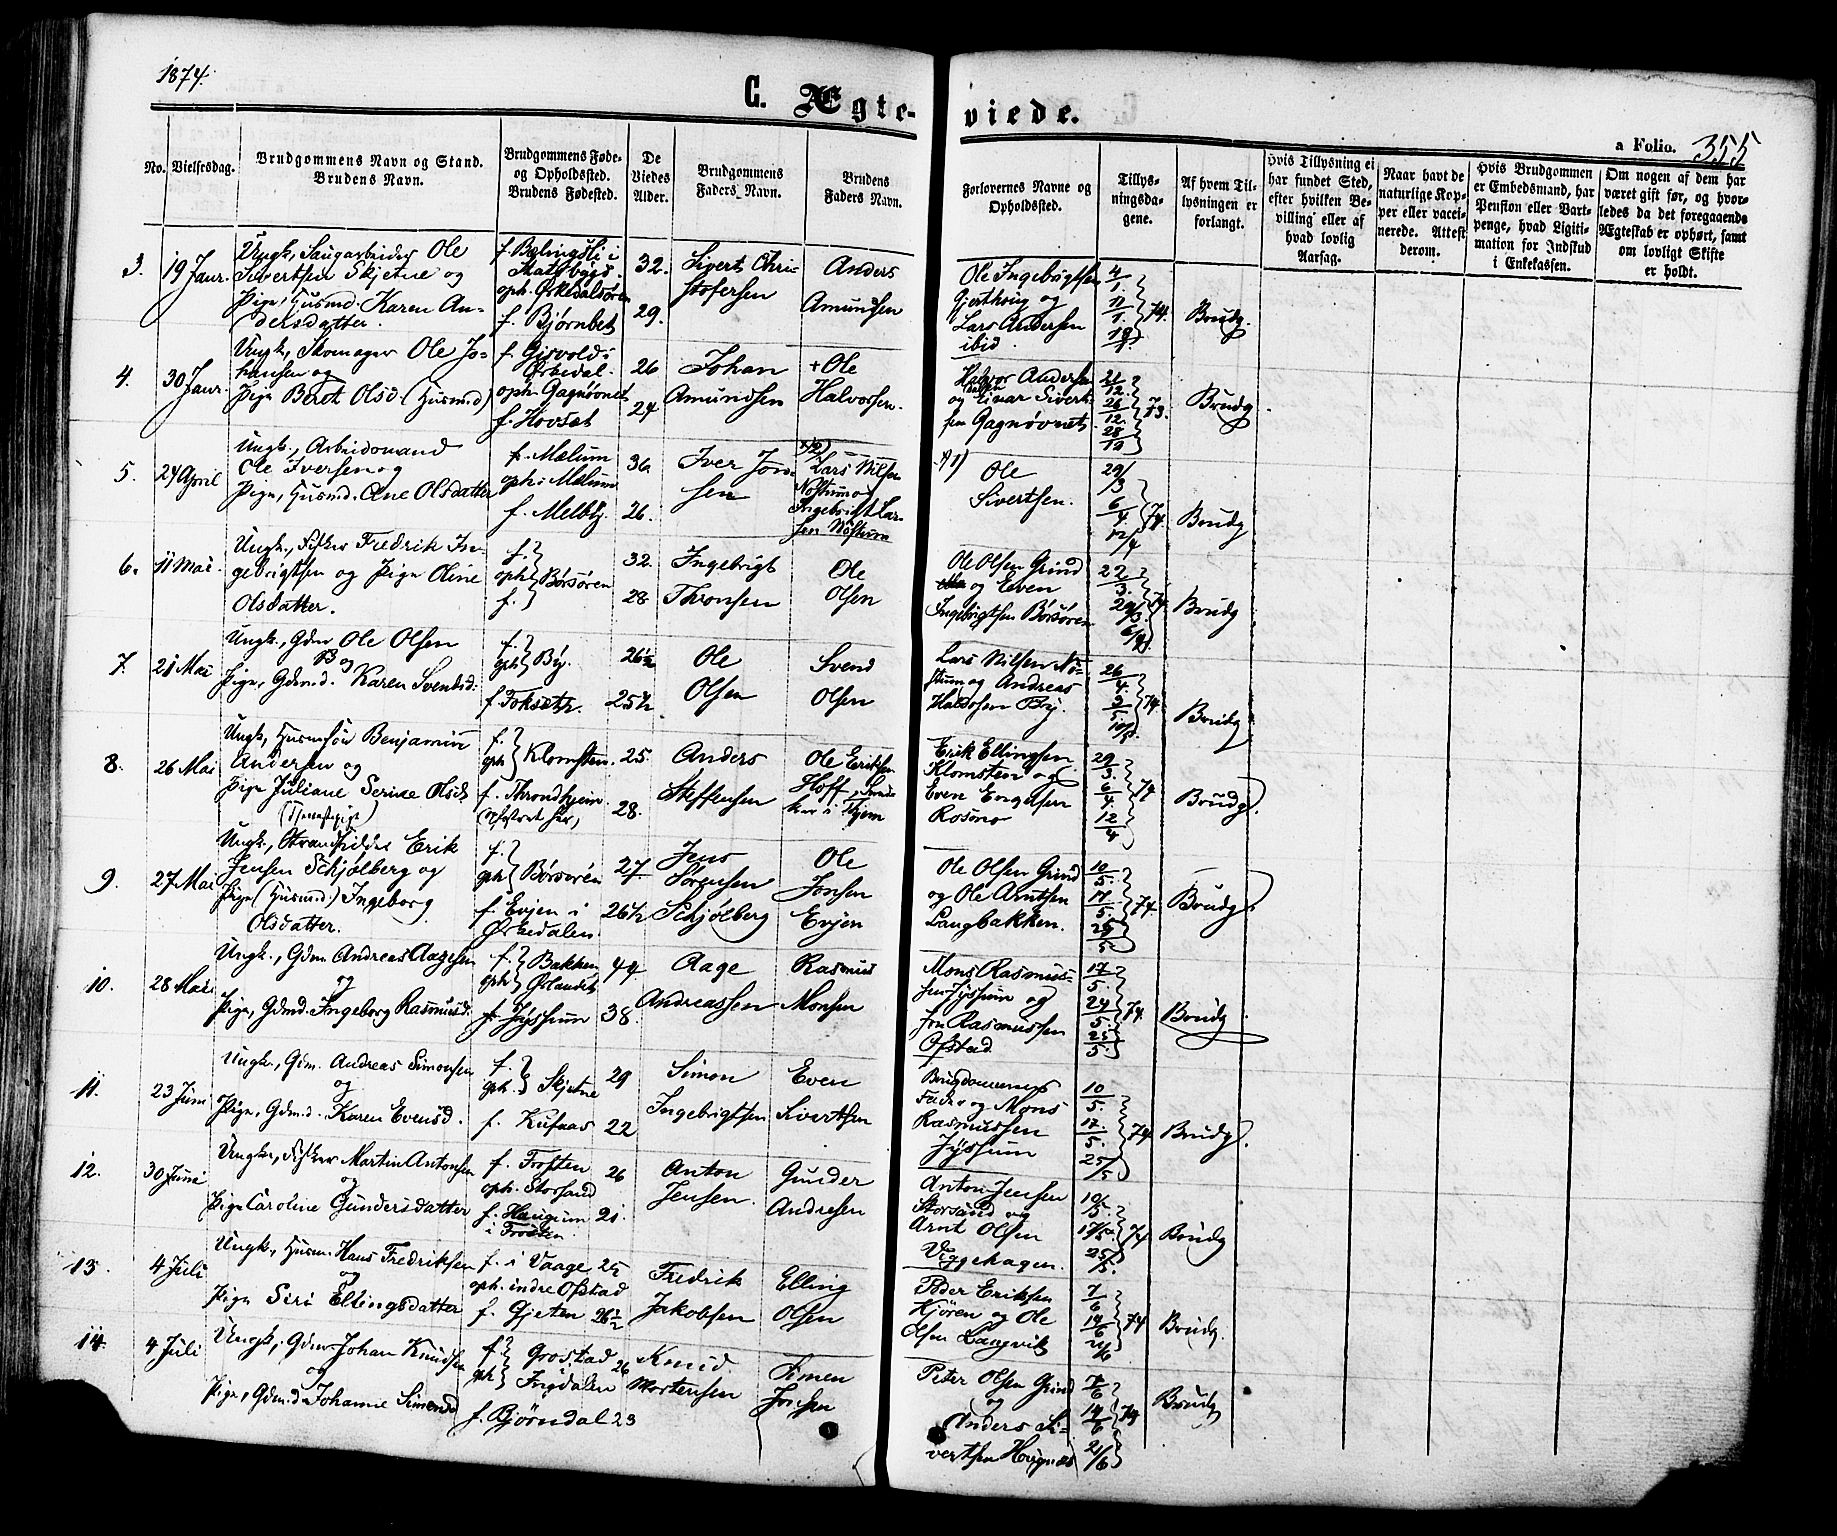 1874.
C. Ægteviede.
a Folio. 355
No.
Vielsesdag.
Brudgommens Navn og Stand.
Brudens Navn.
Brudgommens Føde-
og Opholdssted.
Brudens Fødested.
De
Viedes
Alder.
Brudgommens
Faders Navn.
Brudens
Faders Navn.
Forlovernes Navne og
Opholdssted.
Tillys-
ningsda-
gene.
Af hvem Til-
lysningen er
forlangt.
Hvis Tillysning ei
har fundet Sted,
efter hvilken Be-
villing eller af
hvad lovlig
Aarsag.
Naar havt de
naturlige Kop-
per eller vacci-
nerede. Attest
derom.
Hvis Brudgommen
er Embedsmand, har
Pension eller Vart-
penge, hvad Ligiti-
mation for Indskud
i Enkekassen.
Om nogen af dem har
været gift før, og hvor-
ledes da det foregaaende
Ægteskab er ophørt, samt
om lovligt Skifte
er holdt.
3. 19 Janr.
Ungk., Saugarbeider Ole
Sivertsen Skjetne og
Pige, Husmd. Karen An-
dersdatter.
f. Bælingsli i
oph. Orkedalsøren
f. Bjørnbet
32.
29.
Sivert Chri-
stofersen
Anders
Amundsen
Ole Ingebrigtsen
Gjerthvig og
Lars Andersen
ibid.
4/1.
11/1.
18/1. 74.
Brudg.
4. 30 Janr.
Ungk., Skomager Ole Jo-
hansen og
Pige Beret Olsd (Husmd)
f. Gjsvold i
Orkedal.
oph. Gagnøvnet
f. Hovset
26
24
Johan
Amundsen
+ Ole
Halvorsen.
Halvor Andersen
og Einar Sivert-
sen Gagnøvnet
21/12.
26/12.
28/12 73.
Brudg
5. 24 April
Ungk., Arbeidsmand
Ole Iversen og
Pige, Husmd. Ane Olsdatter
f. Mælum
oph. i Mælum
f. Melby
36.
26.
Iver Jon-
sen
Lars Nilsen
Nøstum og
Ingebrigt Lar-
sen Nøstum
Ole
Sivertsen.
29/3
6/4.
12/4 74.
Brudg
6. 11 Mai.
Ungk., Fisker Fredrik In-
gebrigtsen og Pige Oline
Olsdatter.
f.
oph. Børsøren
f.
32.
28
Ingebrigt
Thronsen
Ole
Olsen
Ole Olsen Grind
og Even
Ingebrigtsen Børsøren
22/3.
29/3.
6/4 74.
Brudg
7. 21 Mai
Ungk., Gdm Ole Olsen
By og
Pige, Gdmd. Karen Svendsd.
f.
oph. By.
f. Foksæth.
26½
25½.
Ole
Olsen
Svend
Olsen
Lars Nilsen Nø-
stum og Andreas
Haldosen By.
26/4.
3/5.
10/5. 74.
Brudg
8. 26 Mai
Ungk., Husmsøn Benjamin
Andersen og
Pige Juliane Serine Olsd.
(Tjenestepige)
f.
oph. Klomsten.
f. Throndhjem
(opfostret her)
25.
28.
Anders
Steffensen
Ole Eriksen
Hoff, Sned-
ker i Thjem
Erik Ellingsen
Klomsten og
Even Engelsen
Rosmo
29/3.
6/4.
12/4 74
Brudg.
9. 27 Mai
Ungk., Strandsidder Erik
Jensen Schjølberg og
Pige (Husmd.) Ingeborg
Olsdatter.
f.
oph. Børsøren
f. Evjen i
Orkedalen.
27.
26½
Jens
Sørensen
Schjølberg
Ole
Jonsen
Evjen
Ole Olsen Grind
og Ole Arntsen
Langbakken.
10/5.
17/5.
25/5 74.
Brudg.
10. 28 Mai
Ungk., Gdm. Andreas Aagesen
og
Pige, Gdmd. Ingeborg Rasmusd.
f. Bakken
oph. Øslandet
f. Jyssum
44
38.
Aage
Andreassen
Rasmus
Monsen
Mons Rasmus-
sen Jyssum og
Jon Rasmussen
Ofstad
17/5.
24/5.
25/5. 74.
Brudg
11. 23 Juni
Ungk., Gdm. Andreas Simonsen
og
Pige, Gdmd. Karen Evensd.
f.
oph. Skjetne
f. Kufaas
29
22
Simon
Ingebrigtsen
Even
Sivertsen
Brudgommens
Fader og Mons
Rasmussen
Jyssum
10/5.
17/5.
25/5 74
Brudg.
12. 30 Juni
Ungk., Fisker Martin Antonsen
og
Pige Caroline Gundersdatter
f. Frosten
oph. Storsand
f. Haugum
i Frosten.
26
21.
Anton
Jensen.
Gunder
Andresen
Anton Jensen
Storsand og
Arnt Olsen
Viggehagen.
10/5
17/5.
25/5. 74
Brudg
13. 4 Juli
Ungk., Husm. Hans Fredriksen
og
Pige Siri Ellingsdatter
f. i Vaage
oph. indre Ofstad
f. Gjeten
25
26½
Fredrik
Jakobsen
Elling
Olsen
Peder Eriksen
Kjøren og Ole
Olsen Langvik
7/6
14/6
21/6 74
Brudg.
14. 4 Juli
Ungk., Gdm. Johan Knudsen
og
Pige, Gdmd. Johanne Simensd
f. Grostad
oph. Jngdalen
f. Bjørndal
26
23
Knud
Mortensen
Simen
Peter Olsen Grind
og
Anders Si-
vertsen
7/6
14/6
21/6 74
Brudg